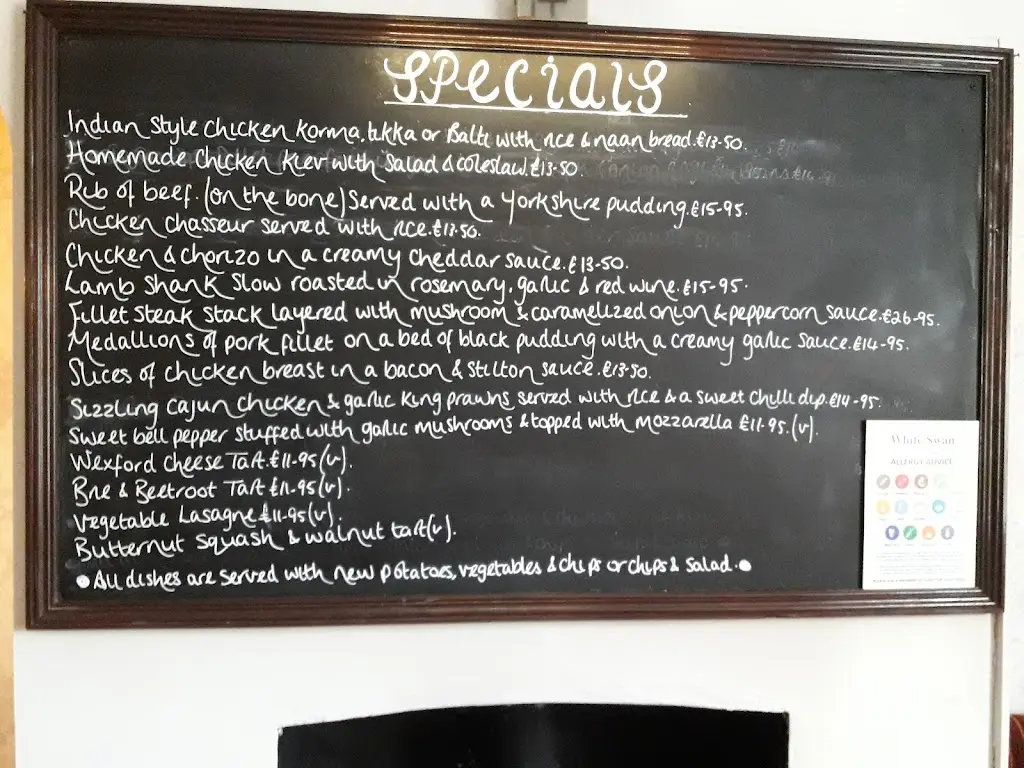 SPECIALS
Indian Style Chicken Korma, tikka or Balti with rice & naan bread.£13-50.
Homemade Chicken Kiev with Salad & coleslaw.£13-50.
Rib of beef.(on the bone)Served with a Yorkshire pudding.£15-95.
Chicken chasseur served with rice.£13-50.
Chicken & chorizo in a creamy cheddar sauce.£13-50.
Lamb Shank Slow roasted in rosemary, garlic & red wine.£15-95.
Fillet Steak Stack layered with mushroom & caramelized onion & peppercorn sauce.£26-95.
Medallions of pork fillet on a bed of black pudding with a creamy garlic sauce.£14-95.
Slices of chicken breast in a bacon & Stilton sauce.£13-50.
Sizzling Cajun Chicken & garlic King prawns served with rice & a sweet chilli dip.£14-95.
Sweet bell pepper stuffed with garlic mushrooms & topped with mozzarella £11-95.(v).
Wexford Cheese Tart.£11-95(v).
Brie & Beetroot Tart £11-95(v).
Vegetable Lasagne £11-95(v).
Butternut Squash & walnut tart(v).
●All dishes are served with new potatoes, vegetables & chips or chips & Salad.●
White Swan
ALLERGY ADVICE